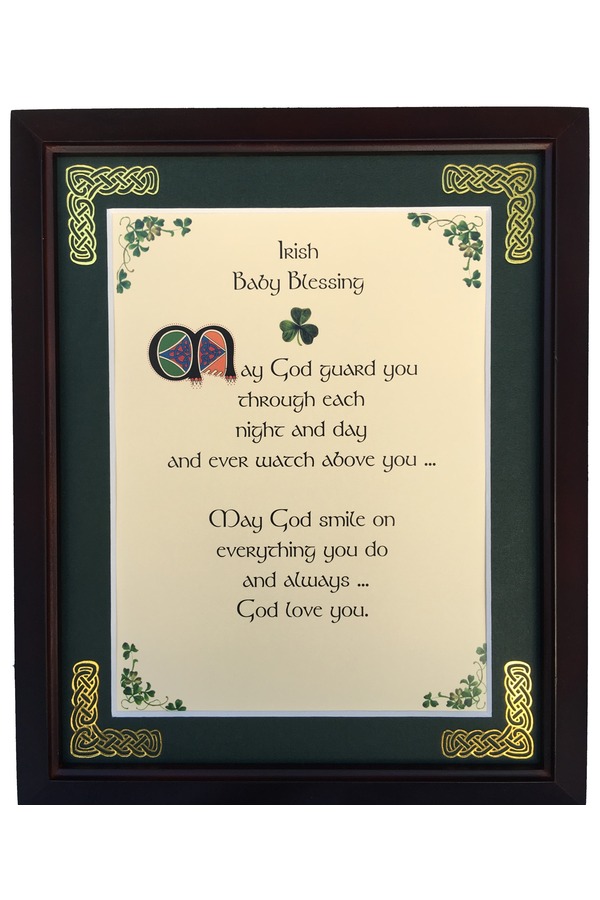 Irish
Baby Blessing
May God guard you
through each
night and day
and ever watch above you ...
May God smile on
everything you do
and always ...
God love you.